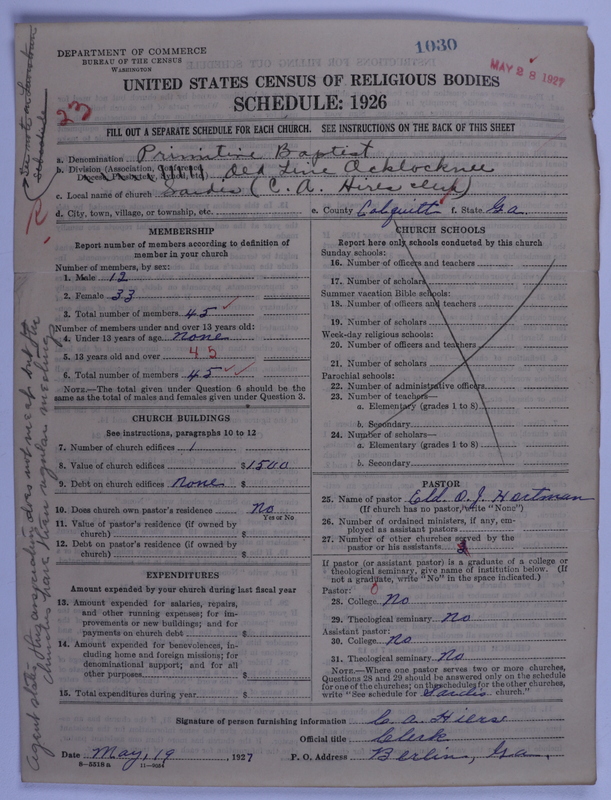 1030
MAY 28 1927
DEPARTMENT OF COMMERCE
BUREAU OF THE CENSUS
WASHINGTON
UNITED STATES CENSUS OF RELIGIOUS BODIES
SCHEDULE: 1926
23
FILL OUT A SEPARATE SCHEDULE FOR EACH CHURCH. SEE INSTRUCTIONS ON THE BACK OF THIS SHEET
a. Denomination Primitive Baptist
b. Division (Association, Conference, Diocese, Presbytery, Synod, etc.) Old Line Acklocknee
c. Local name of church Sardis (C. A. Hires clerk)
d. City, town, village, or township, etc.
e. County Colquitt f. State Ga.
MEMBERSHIP
Report number of members according to definition of
member in your church
Number of members, by sex:
1. Male 12
2. Female 33
3. Total number of members 45
Number of members under and over 13 years old:
4. Under 13 years of age none
5. 13 years old and over 45
6. Total number of members 45
NOTE.—The total given under Question 6 should be the
same as the total of males and females given under Question 3.
CHURCH BUILDINGS
See instructions, paragraphs 10 to 12
7. Number of church edifices 1
8. Value of church edifices $1500
9. Debt on church edifices none $
10. Does church own pastor's residence no
Yes or No
11. Value of pastor's residence (if owned by
church) $
12. Debt on pastor's residence (if owned by
church) $
EXPENDITURES
Amount expended by your church during last fiscal year
13. Amount expended for salaries, repairs,
and other running expenses; for im-
provements or new buildings; and for
payments on church debt $
14. Amount expended for benevolences, in-
cluding home and foreign missions; for
denominational support; and for all
other purposes $
15. Total expenditures during year $
CHURCH SCHOOLS
Report here only schools conducted by this church
Sunday schools:
16. Number of officers and teachers
17. Number of scholars
Summer vacation Bible schools:
18. Number of officers and teachers
19. Number of scholars
Week-day religious schools:
20. Number of officers and teachers
21. Number of scholars
Parochial schools:
22. Number of administrative officers
23. Number of teachers—
a. Elementary (grades 1 to 8)
b. Secondary
24. Number of scholars—
a. Elementary (grades 1 to 8)
b. Secondary
PASTOR
25. Name of pastor Eld. O. J. Hartman
(If church has no pastor, write "None")
26. Number of ordained ministers, if any, em-
ployed as assistant pastors
27. Number of other churches served by the
pastor or his assistants
If pastor (or assistant pastor) is a graduate of a college or
theological seminary, give name of institution below. (If
not a graduate, write "No" in the space indicated.)
Pastor:
28. College No
29. Theological seminary No
Assistant pastor:
30. College No
31. Theological seminary No
NOTE.—Where one pastor serves two or more churches,
Questions 28 and 29 should be answered only on the schedule
for one of the churches; on the schedules for the other churches,
write "See schedule for Sardis church."
Signature of person furnishing information C. A. Hiers
Official title Clerk
Date May, 19, 1927
P. O. Address Berlin, Ga.,
8-5518 a 11-9554
Agent states this association does not meet but the
churches have their regular meetings